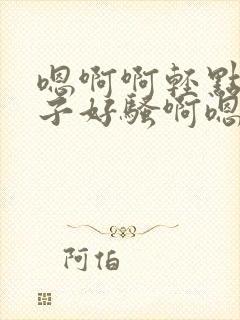 嗯啊啊轻點
子好騷啊嗯
阿伯